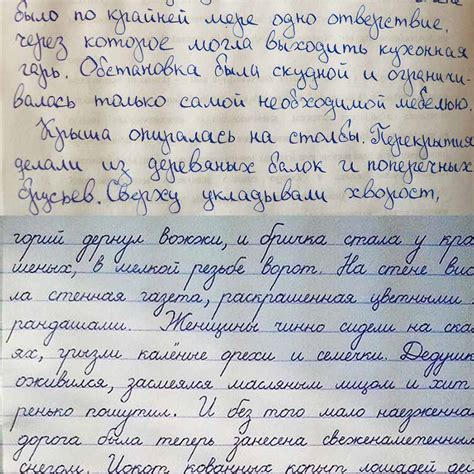 было по крайней мере одно отверствие,
через которое могла выходить кухонная
гарь. Обстановка была скудной и ограничи-
валась только самой необходимой мебелью
Крыша опиралась на столбы. Перекрытия
делали из деревяных балок и поперечных
брусьев. Сверху укладывали хворост,
горий дернул вожжи, и бричка стала у кра
шеных, в мелкой резьбе ворот. На стене вис
ла стенная газета, раскрашенная цветными
рандашами. Женщины чинно сидели на ска
ях, грызли калёные орехи и семечки. Дедушк
оживился, засмеялся масляным лицом и хит
ренько пошутил. И без того мало наезженна
дорога была теперь занесена свеженаметенны
снегом. Цокот кованных копыт лошадей